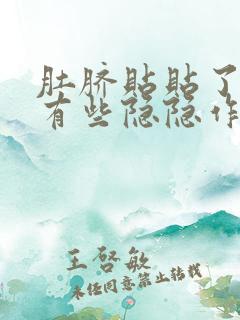 肚脐贴贴了
有些隐隐作
王启敏
未经同意禁止转载